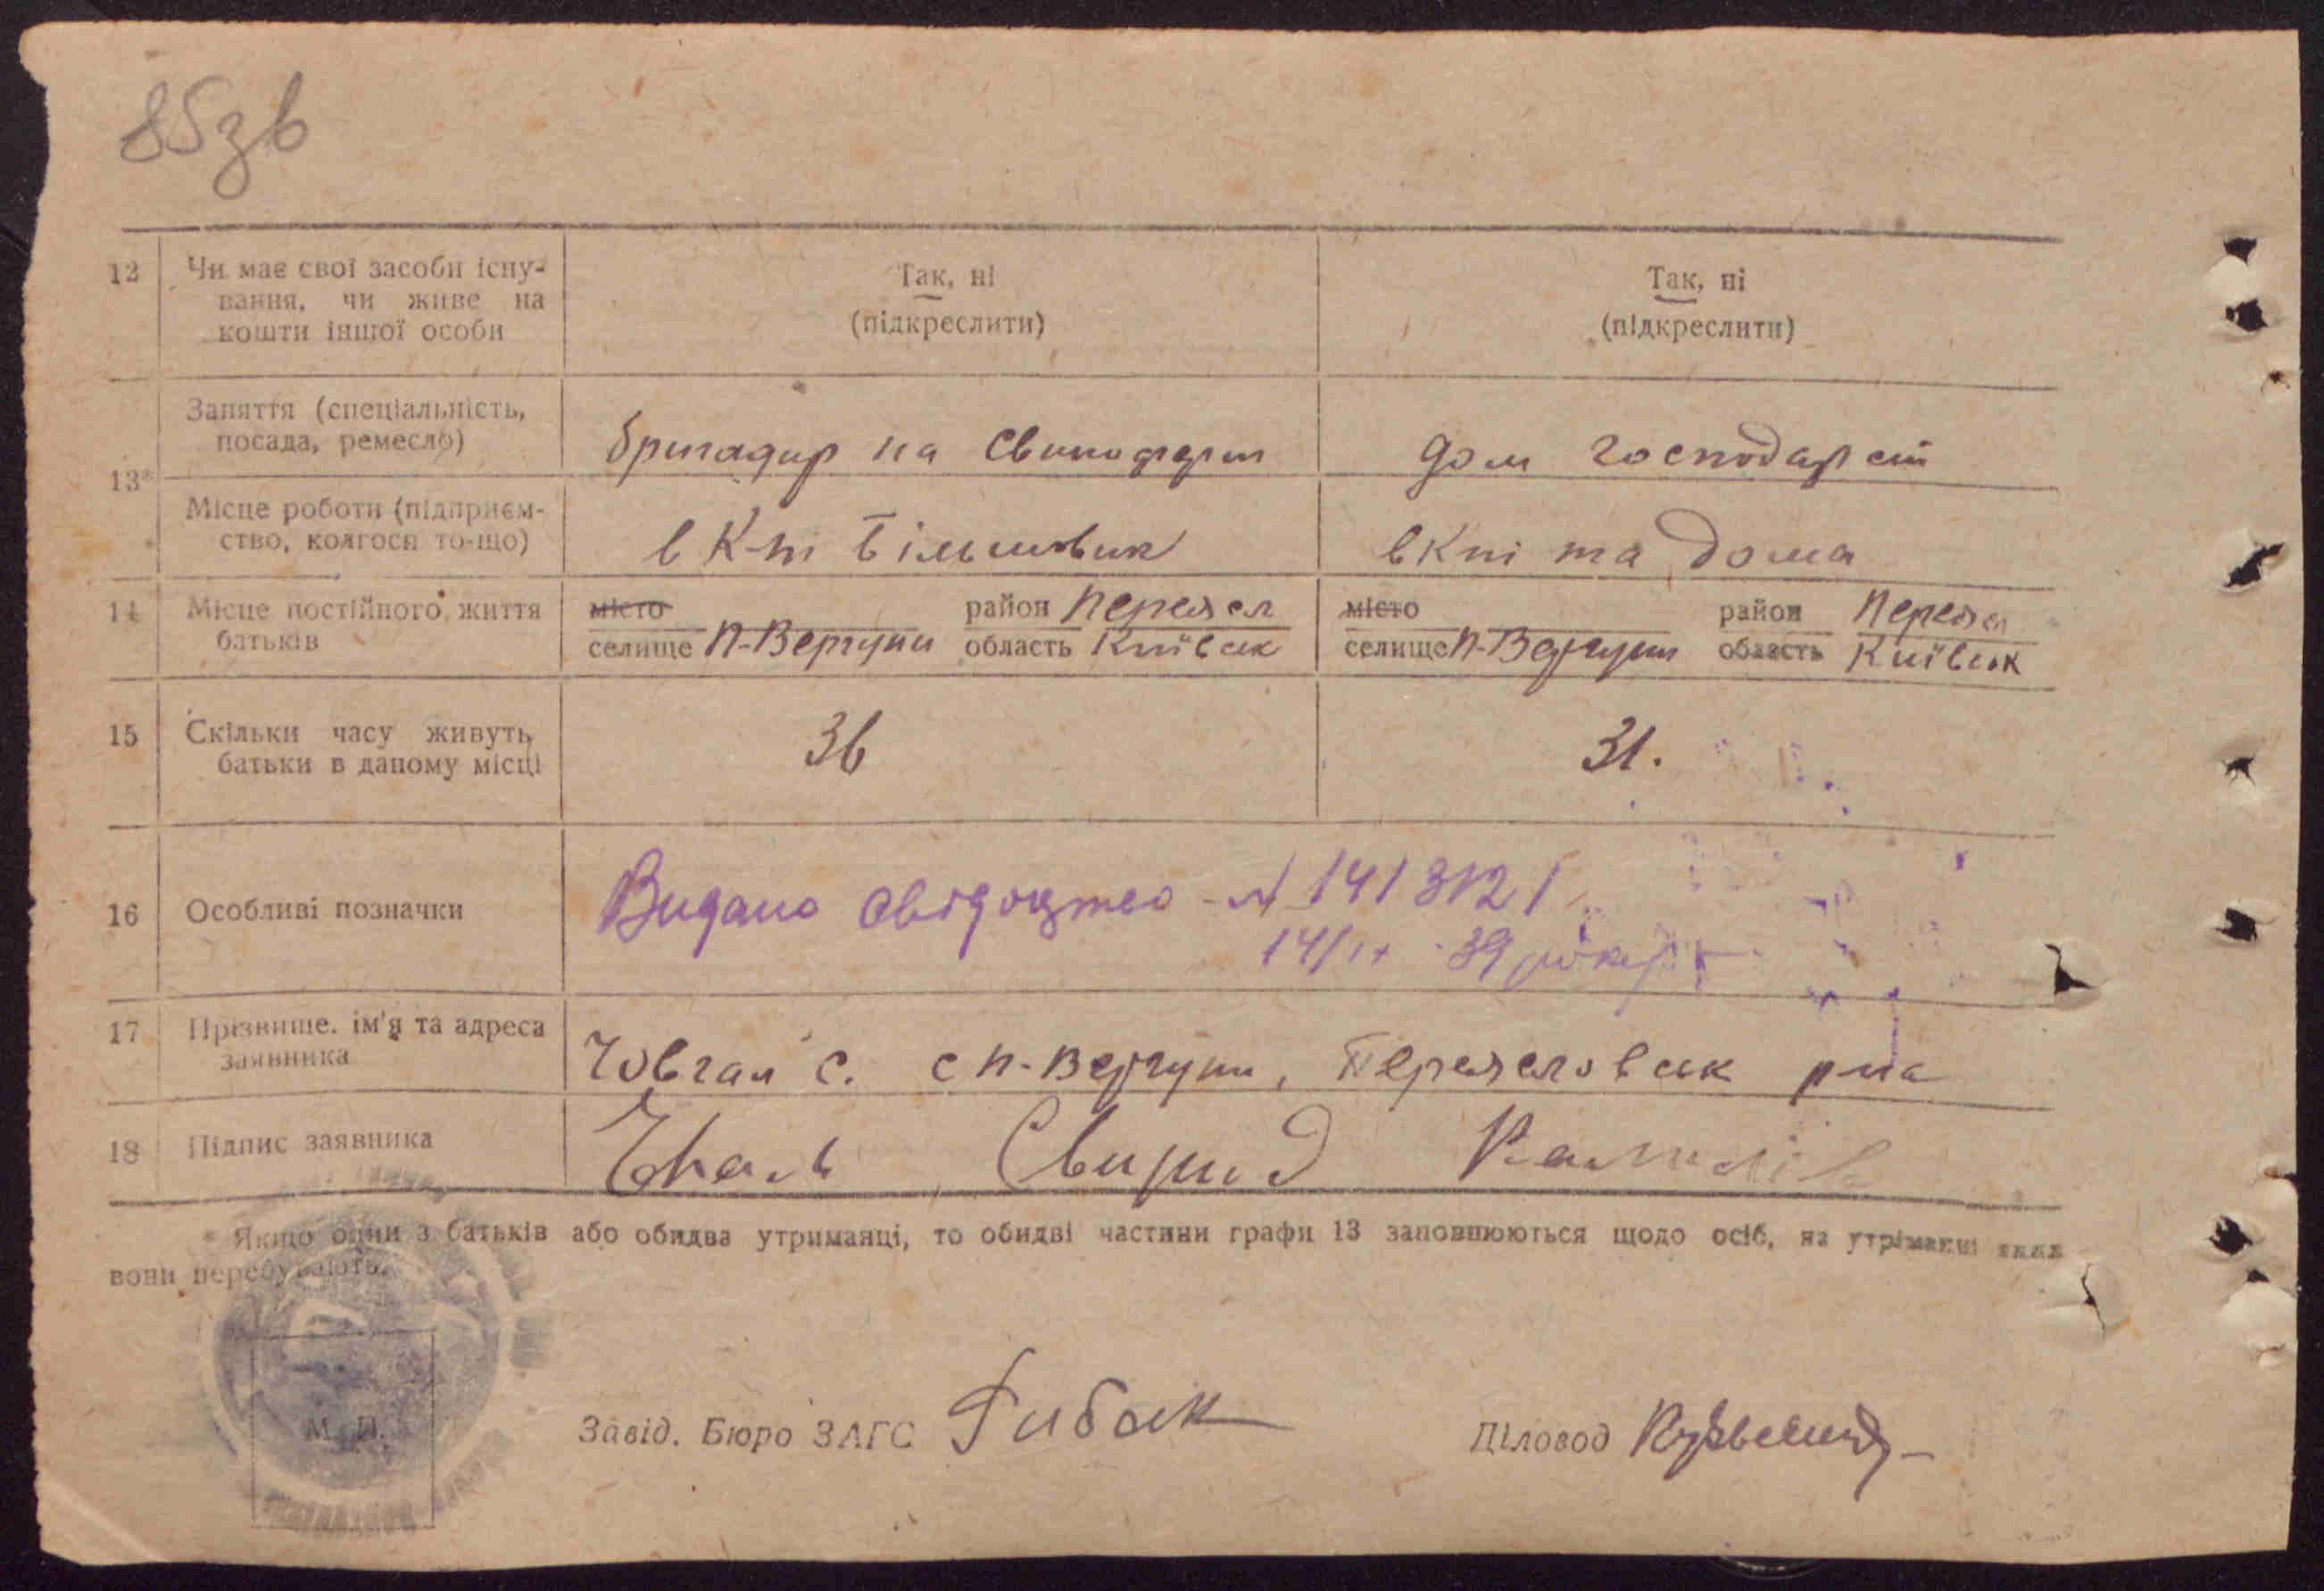 85зв
12 Чи має свої засоби існу- Так, ні Так, ні
вання, чи живе на (підкреслити) (підкреслити)
кошти іншої особи
13* Заняття (спеціальність, бригадир на свинофермі дом господарст
посада, ремесло)
Місце роботи (підприєм- в К-ті Більшовик в К-ті та дома
ство, колгосп то-що)
14 Місце постійного життя місто район Переясл місто район Переясл
батьків селище П-Вергуни область Київськ селище П-Вергуни область Київськ
15 Скільки часу живуть 36 31.
батьки в даному місці
16 Особливі позначки Видано свідоцтво № 1413121
14/IX 39 року
17 Прізвище, ім'я та адреса Човгал С. с П-Вергуни, Переясловськ р-на
заявника
18 Підпис заявника Свирид
* Якщо один з батьків або обидва утриманці, то обидві частини графи 13 заповнюються щодо осіб, на утриманні яких
вони перебувають.
М. П.
Завід. Бюро ЗАГС Рибак Діловод